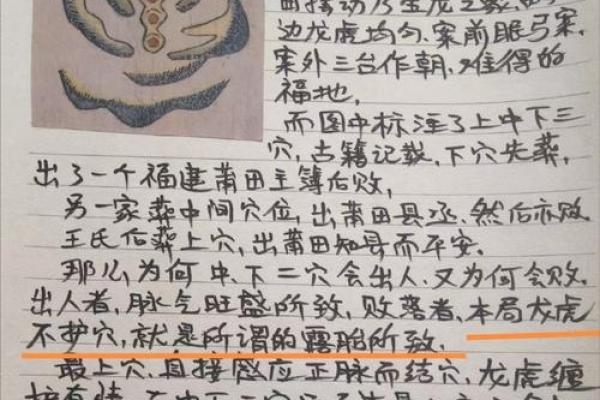 边龙虎均匀.案前眠弓案.
案外三台作朝.难得的
福地.
而图中标注了上中下三
穴,古籍记载,下穴先葬,
出了一个福建莆田主簿后败,
另一家葬中间穴位,出莆田县丞.然后亦败.
王氏后葬上穴,出莆田知县而平安.
那么为何中、下二穴会出人.又为何会败.
出人者,脉气旺盛所致,败落者,本局龙虎
不护穴,就是所谓的露胎所致.
最上穴.直接感应正脉而结穴,龙虎缠